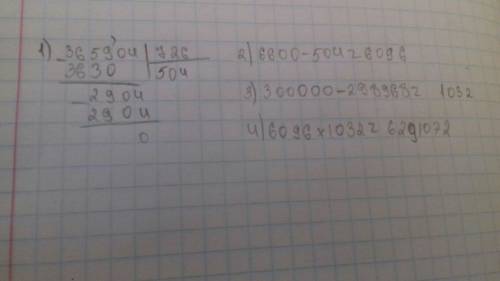 1) 365904 | 726
3630 | 504
2904
2904
0
2) 6600-504=6096
3) 300000-298968= 1032
4) 6096×1032= 6291072